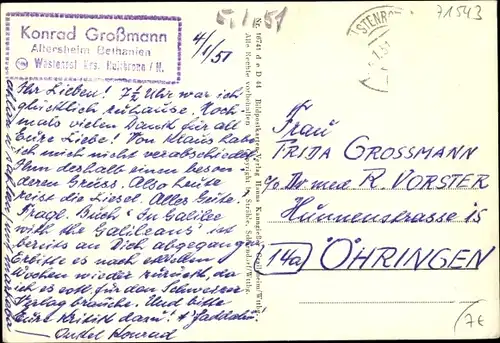 Konrad Großmann
Altersheim Bethanien
Westenrot Krs. Heilbronn / N.
4/1/51
5/1/51
71543
Ihr Lieben! 7½ Uhr war ich
glücklich zuhause. Noch-
mals vielen Dank für all
Eure Liebe! Von Klaus habe
ich mich nicht verabschiedet
Ihm deshalb einen beson-
deren Gruss. Also heute
reise die Liesel. Alles Gute.
Fragl. Buch "In Galilee
with the Galileans" ist
bereits an Dich abgegang.
Erbitte es nach
Wochen wieder zurück, da
ich es ev. für den Schweizer
Verlag brauche. Und bitte
Eure Kritik dazu!
Onkel Konrad
Frau
FRIDA GROSSMANN
c/o Dr med R. VORSTER
Hunnenstrasse 15
14a ÖHRINGEN
7€